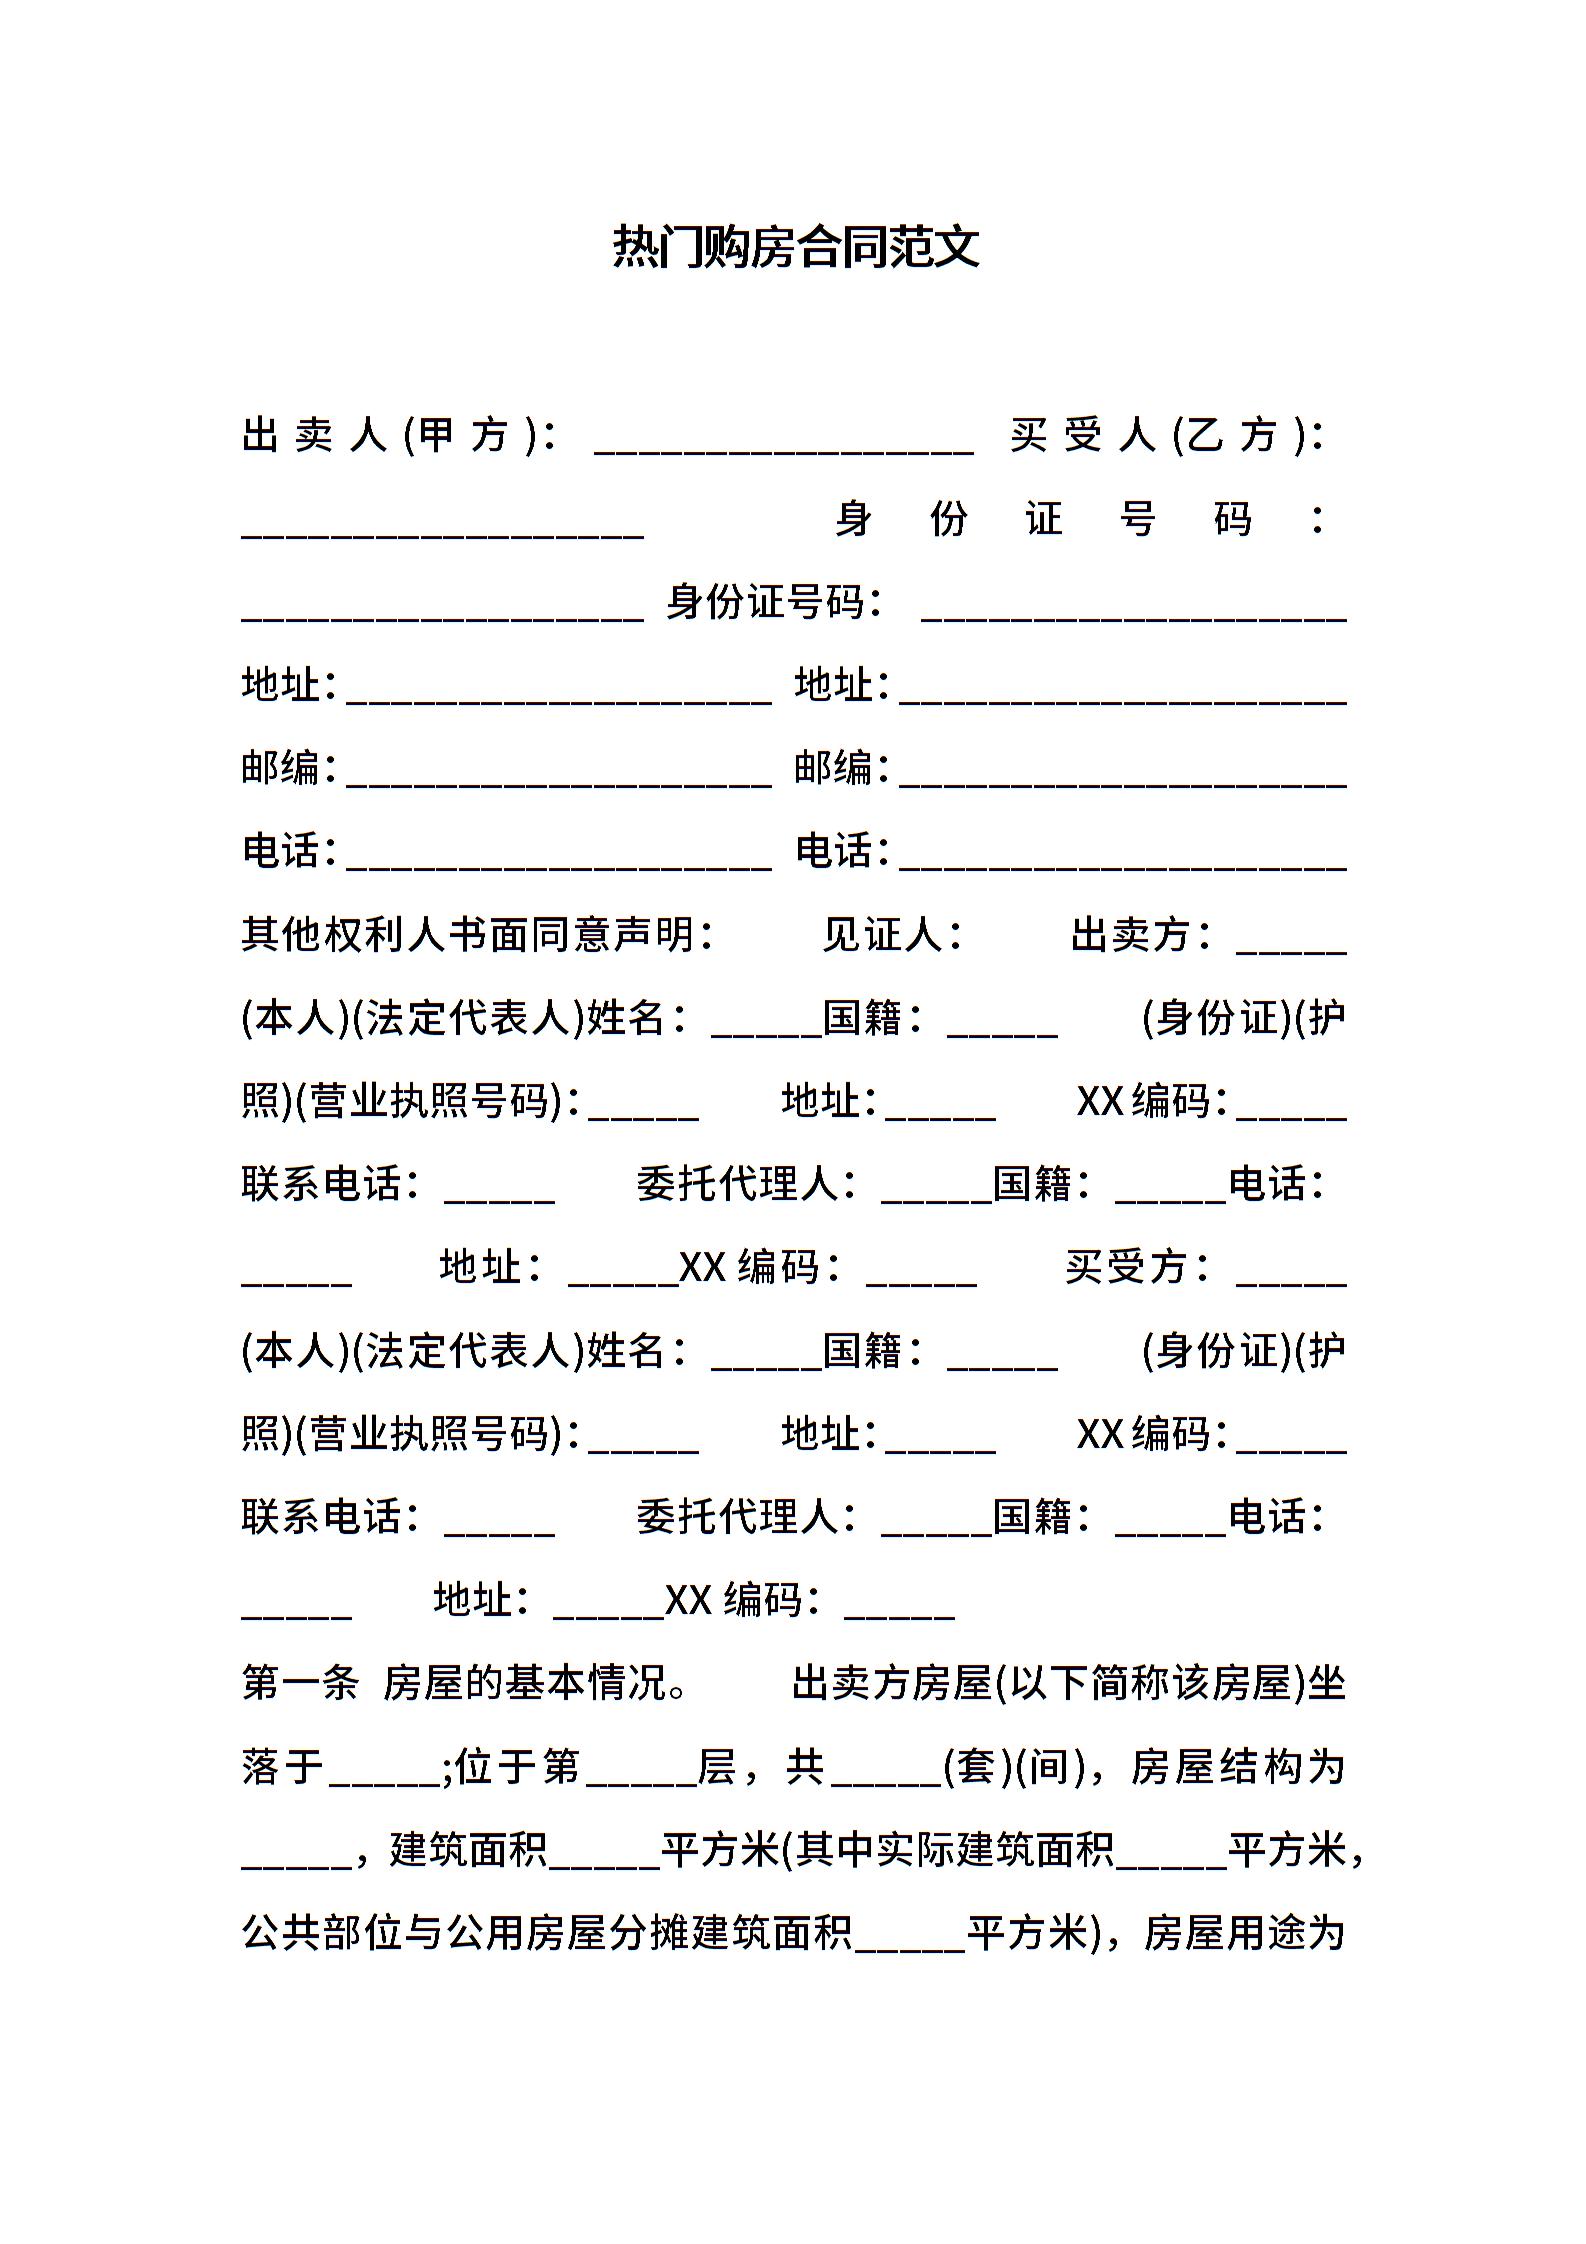 热门购房合同范文
出卖人(甲方)：_________________ 买受人(乙方)：
__________________ 身份证号码：
__________________ 身份证号码：___________________
地址：___________________ 地址：____________________
邮编：___________________ 邮编：____________________
电话：___________________ 电话：____________________
其他权利人书面同意声明： 见证人： 出卖方：_____
(本人)(法定代表人)姓名：_____国籍：_____ (身份证)(护
照)(营业执照号码)：_____ 地址：_____ XX编码：_____
联系电话：_____ 委托代理人：_____国籍：_____电话：
_____ 地址：_____XX 编码：_____ 买受方：_____
(本人)(法定代表人)姓名：_____国籍：_____ (身份证)(护
照)(营业执照号码)：_____ 地址：_____ XX编码：_____
联系电话：_____ 委托代理人：_____国籍：_____电话：
_____ 地址：_____XX 编码：_____
第一条 房屋的基本情况。 出卖方房屋(以下简称该房屋)坐
落于_____;位于第_____层，共_____(套)(间)，房屋结构为
_____，建筑面积_____平方米(其中实际建筑面积_____平方米，
公共部位与公用房屋分摊建筑面积_____平方米)，房屋用途为